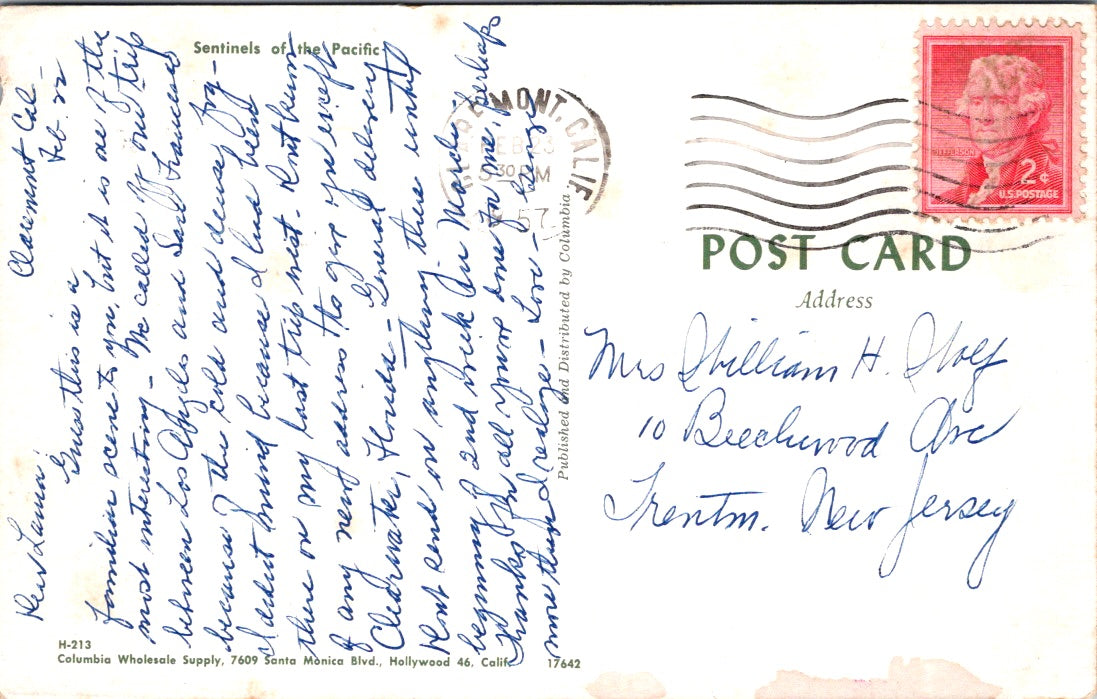 Sentinels of the Pacific
Claremont Cal –
Feb. 22
Dear Laura:
Guess this is a
familiar scene to you, but it is one of the
most interesting – We called by our trip
between Los Angeles and San Francisco
because of the cold and dense fog –
I didn't mind because I had been
there on my last trip west. Don't know
if any new address to give you except
Clearwater, Florida – General delivery
Don't send on anything there until
beginning of 2nd week in March.
Thanks for all you've done for me, perhaps
more than I realize – Love –
CLAREMONT, CALIF.
FEB 23
5 30 PM
57
JEFFERSON
2¢
U.S. POSTAGE
POST CARD
Address
Mrs William H. Wolf
10 Beechwood Ave
Trenton. New Jersey
Published and Distributed by Columbia.
H-213
Columbia Wholesale Supply, 7609 Santa Monica Blvd., Hollywood 46, Calif. 17642